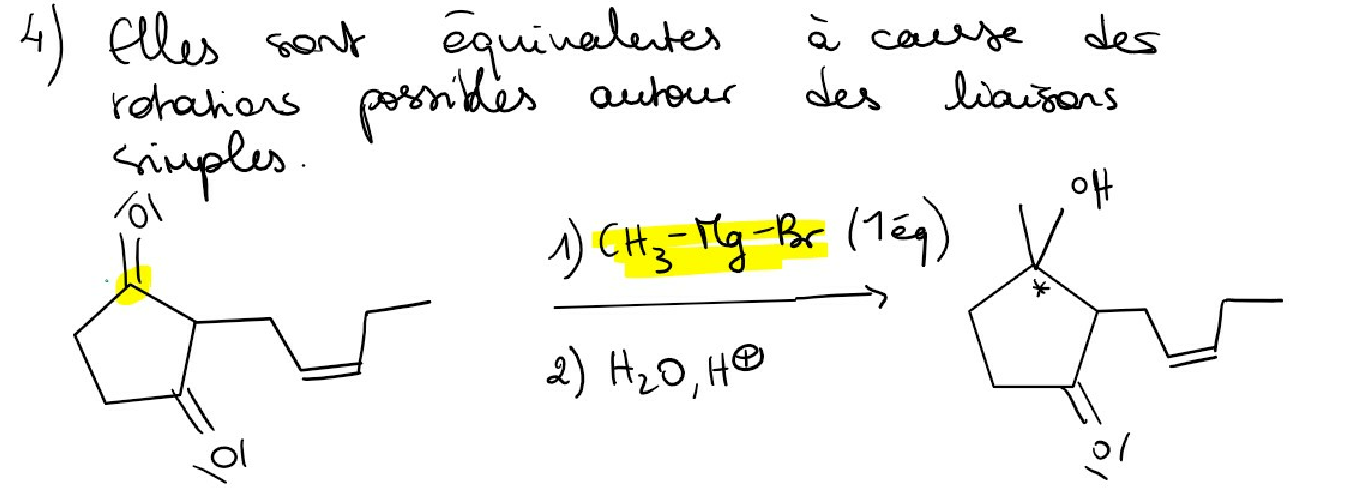 4) Elles sont équivalentes à cause des
rotations possibles autour des liaisons
simples.
O
OH
1) CH3-Mg-Br (1éq)
*
2) H2O, H⊕
O
O